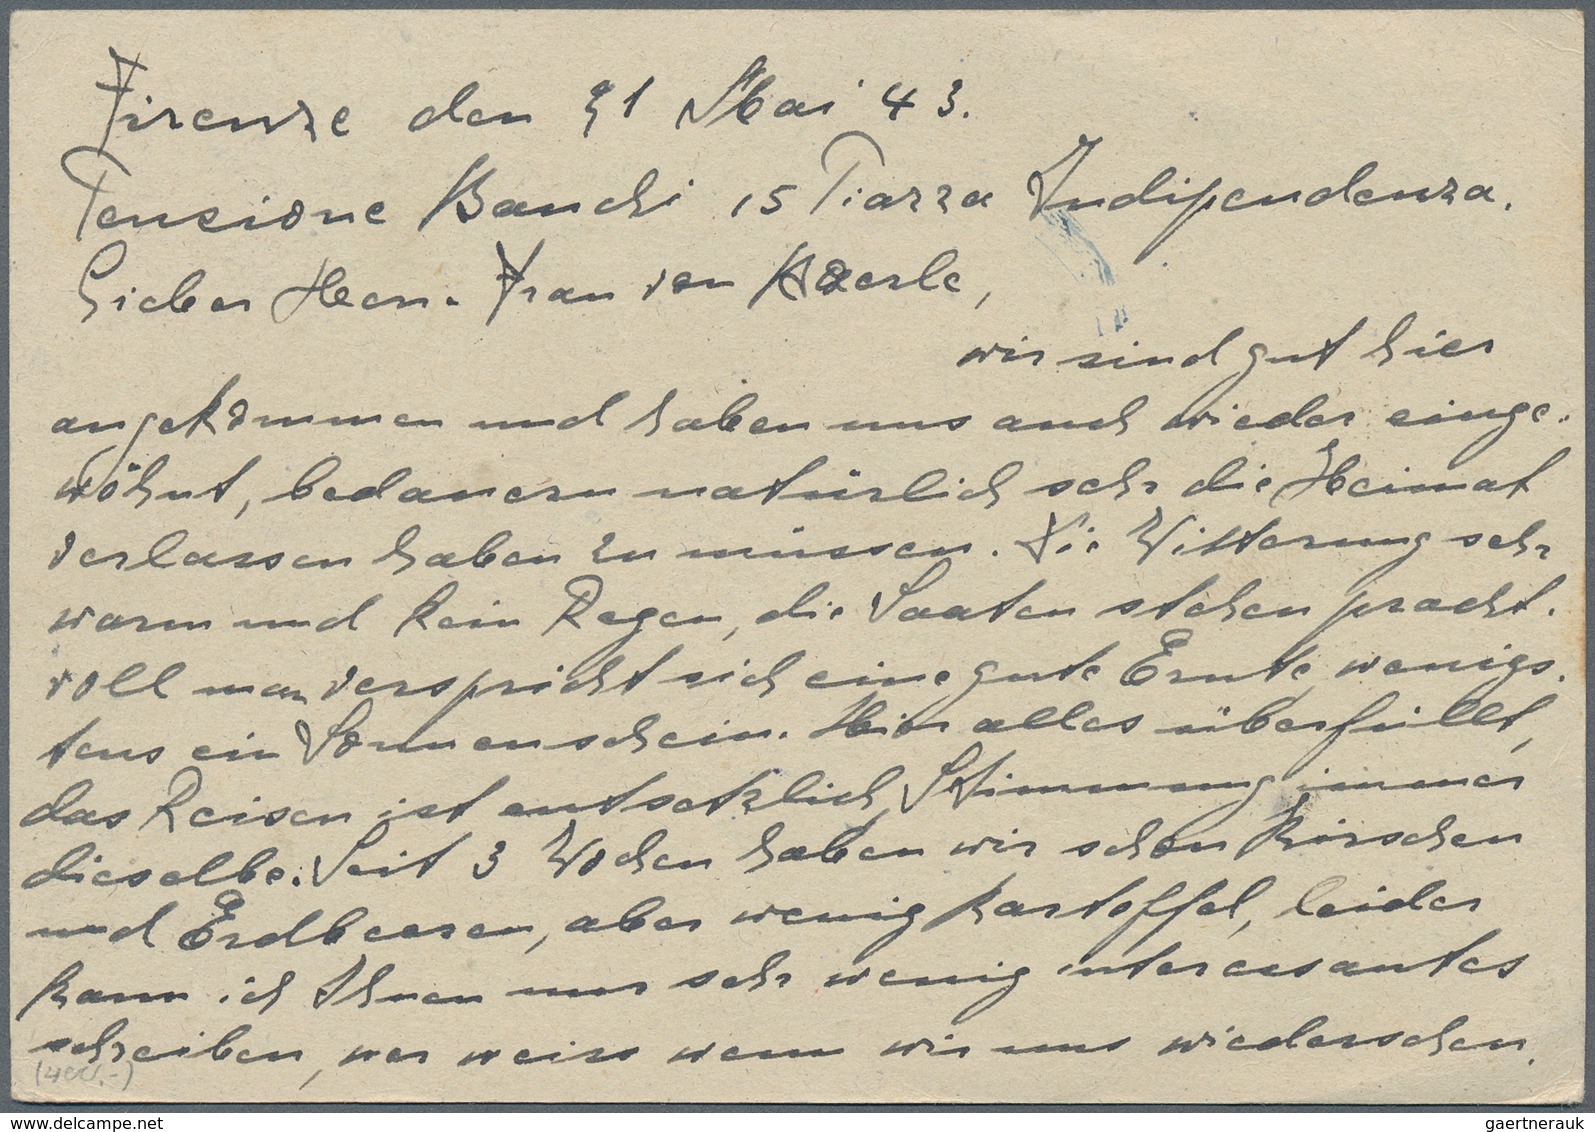 Firenze den 21 Mai 43.
Pensione Banchi 15 Piazza Indipendenza.
Lieber Herr. Frau von
wir sind gut hier
angekommen und haben uns auch wieder einge.
wöhnt, bedauern natürlich sehr die Heimat
verlassen haben zu müssen. Die Witterung sehr
warm und kein Regen, die Saaten stehen pracht.
voll man verspricht sich eine gute Ernte, wenigs.
tens ein Sonnenschein. Hier alles überfüllt,
das Reisen ist entsetzlich, Stimmung immer
dieselbe. Seit 3 Wochen haben wir schon Kirschen
und Erdbeeren, aber wenig Kartoffel, leider
kann ich Ihnen nur sehr wenig interessantes
schreiben, wer weiss wenn wir uns wiedersehen.
(400.-)
gaertnerauk
www.delcampe.net